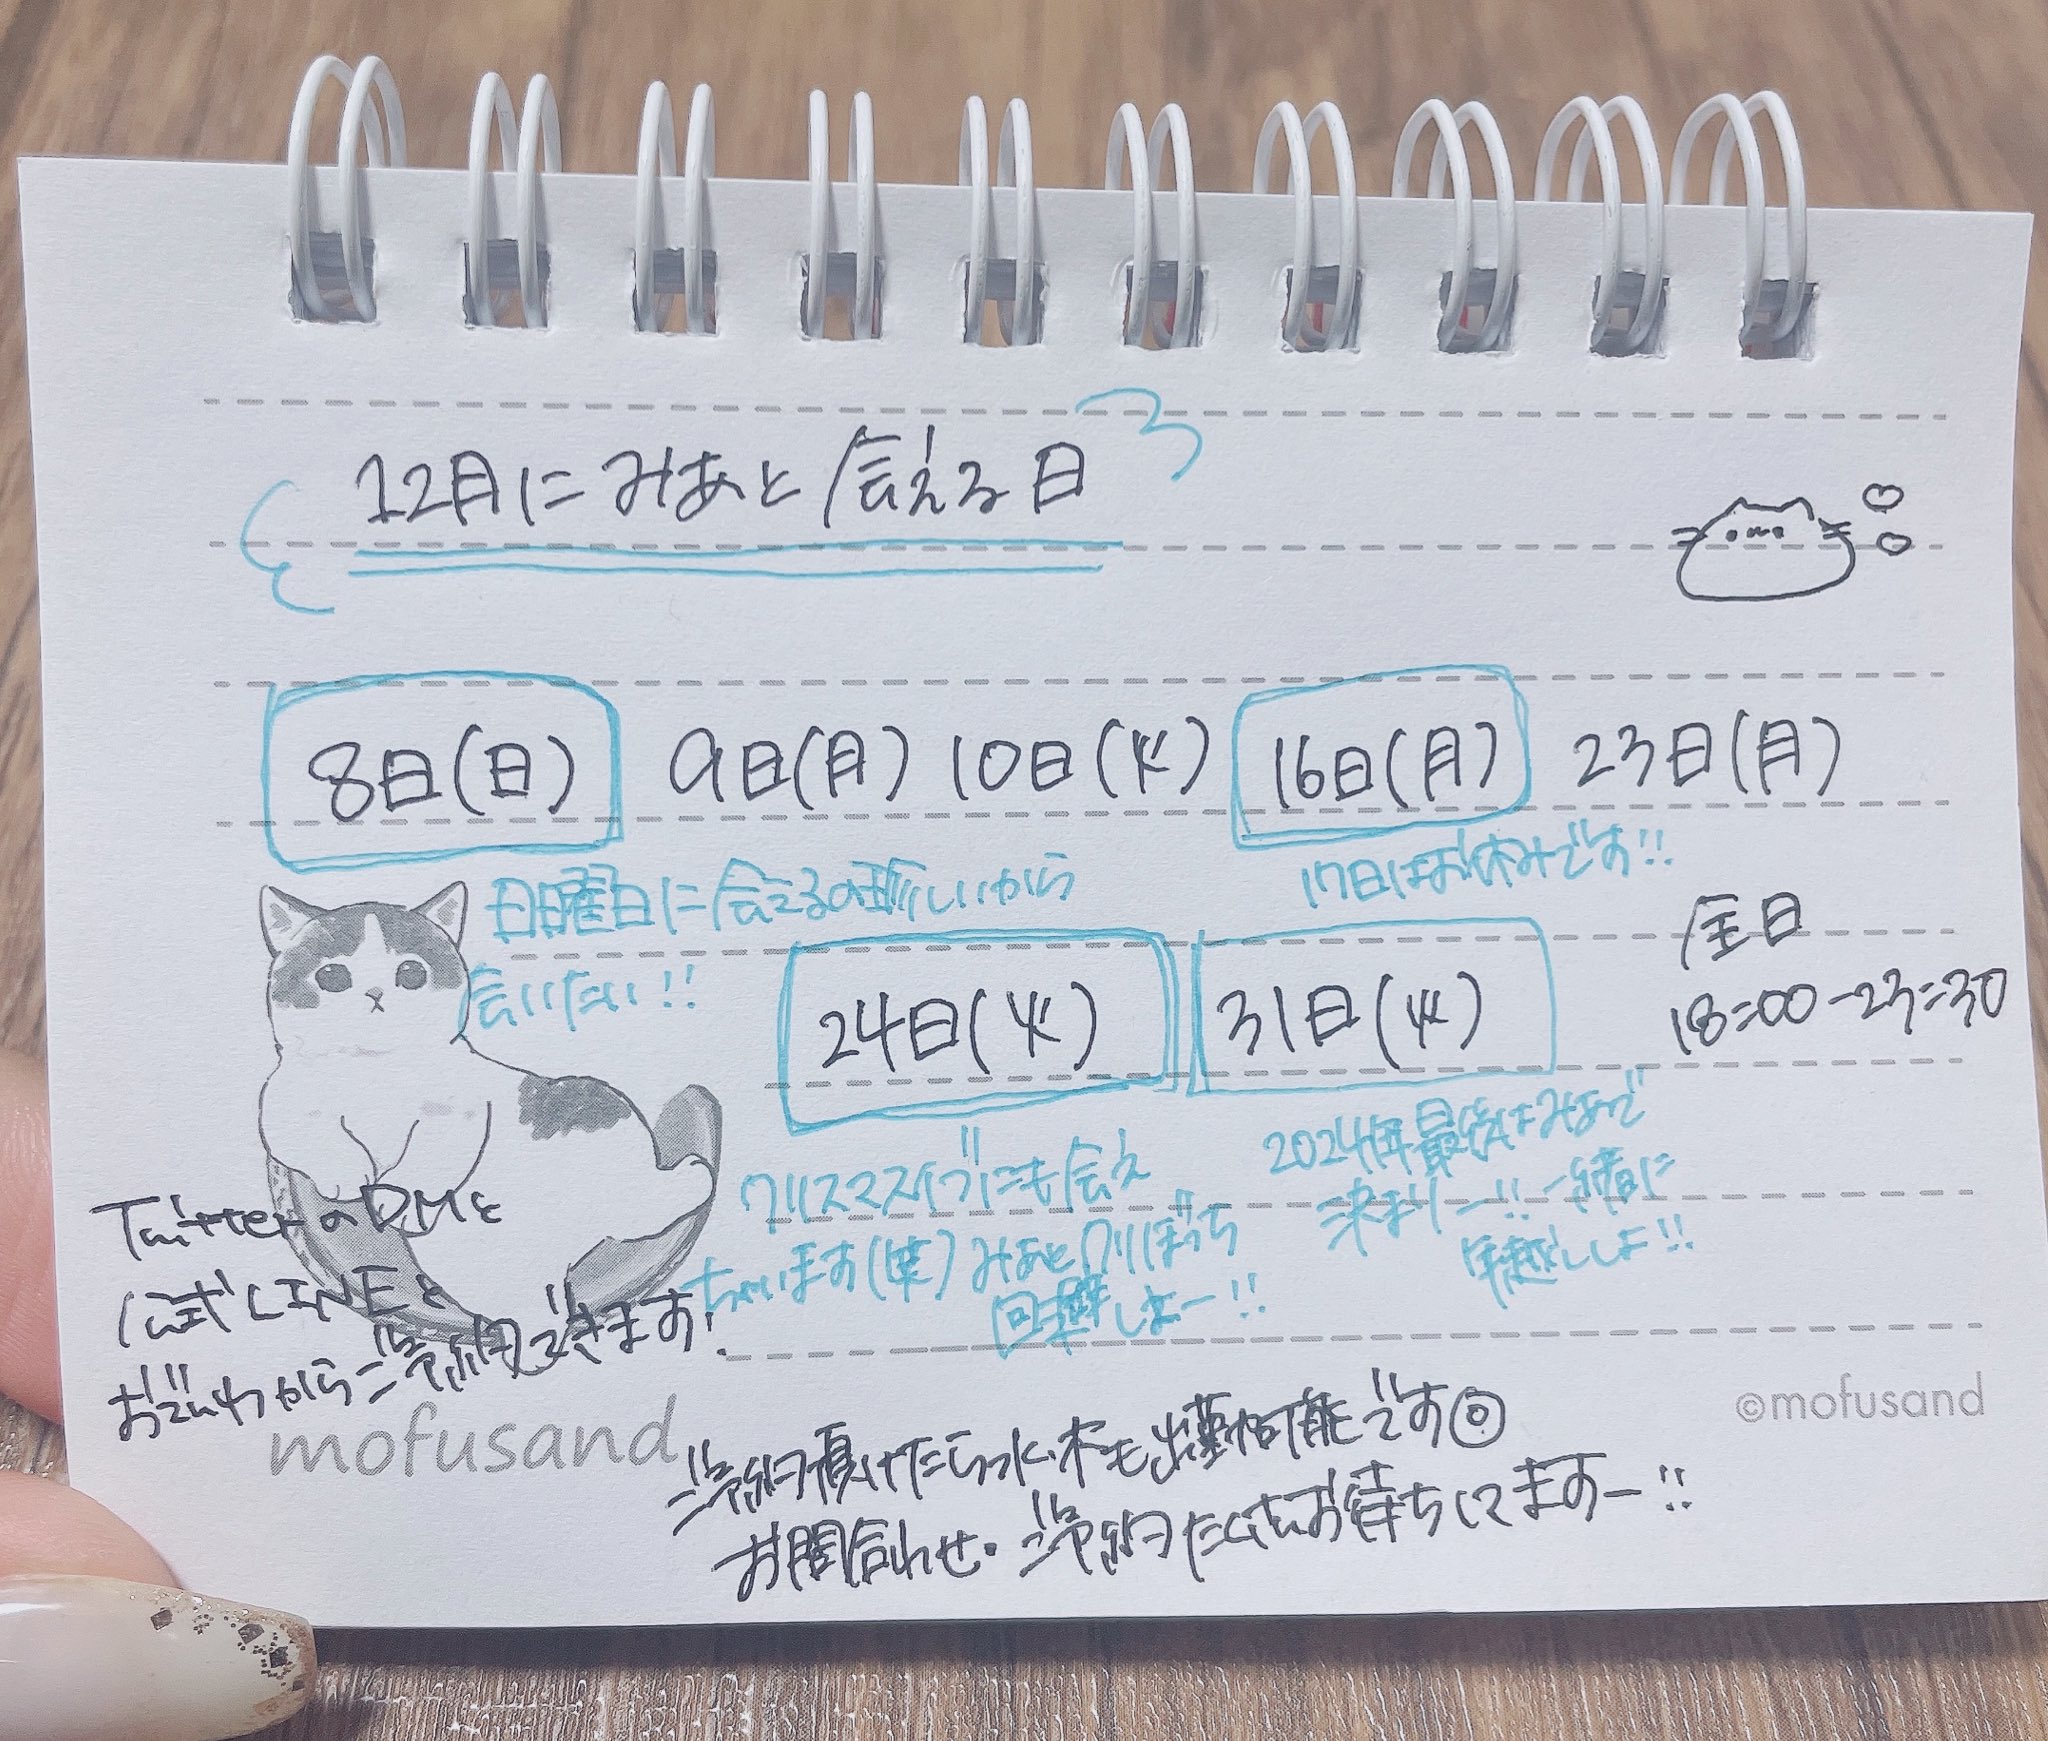 12月にみあと会える日
8日(日) 9日(月) 10日(火) 16日(月) 23日(月)
日曜日に会えるの珍しいから
会いたい!!
17日はお休みです!!
24日(火) 31日(火)
全日
18:00-23:30
クリスマスイブにも会え
ちゃいます(笑)みあとクリぼっち
回避しよー!!
2024年最後はみあで
決まりー!!一緒に
年越ししよ!!
TwitterのDMと
公式LINEと
お電わからご予約できます!
mofusand
©mofusand
ご予約頂けたら火・木も出勤可能です◎
お問合わせ・ご予約たくさんお待ちしてますー!!